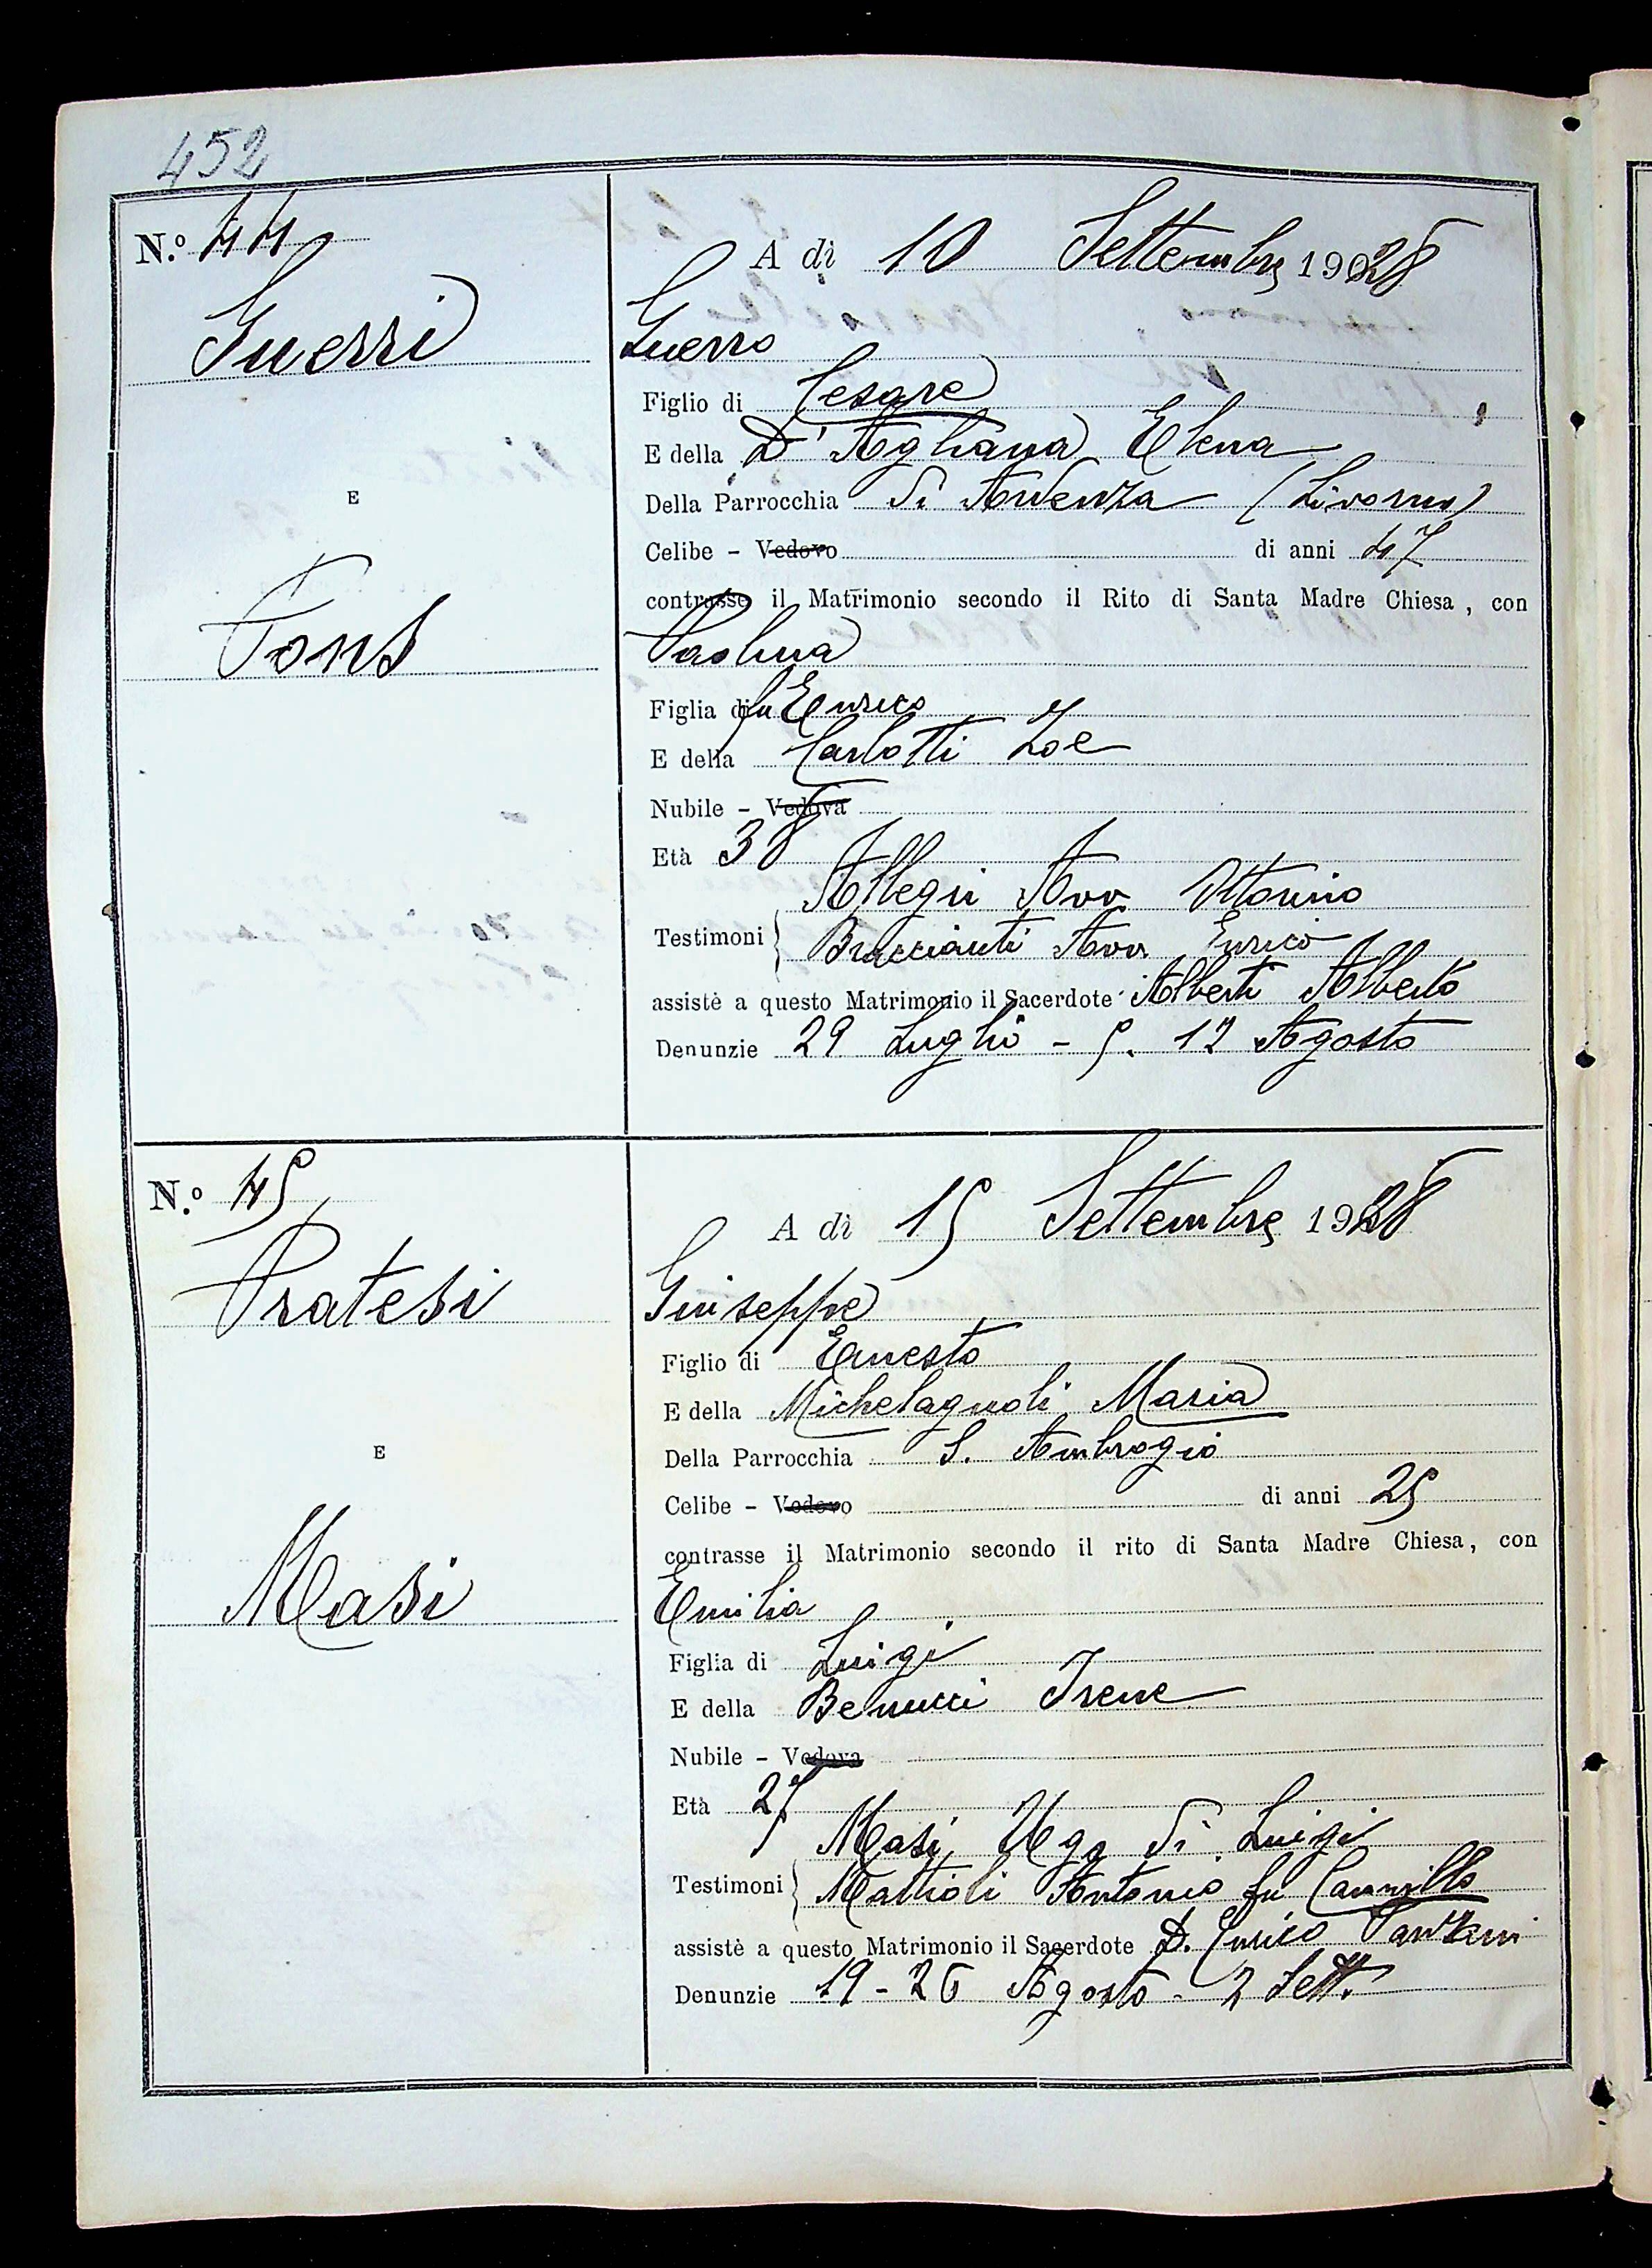 452
N.º 44
A dì 10 Settembre 1928
Guerri
Guerro
Figlio di Cesare
E della D'Agliana Elena
Della Parrocchia di Ardenza (Livorno)
E
Celibe - Vedovo di anni 47
contrasse il Matrimonio secondo il Rito di Santa Madre Chiesa, con
Fons
Paolina
Figlia di fu Enrico
E della Carlotti Zoe
Nubile - Vedova
Età 38
Allegri Avv. Ottorino
Testimoni
Braccianti Avv. Enrico
assistè a questo Matrimonio il Sacerdote Alberti Alberto
Denunzie 29 Luglio - 5. 12 Agosto
N.º 45
A dì 15 Settembre 1928
Pratesi
Giuseppe
Figlio di Ernesto
E della Michelagnoli Maria
Della Parrocchia S. Ambrogio
E
Celibe - Vedovo di anni 25
contrasse il Matrimonio secondo il rito di Santa Madre Chiesa, con
Masi
Emilia
Figlia di Luigi
E della Benucci Irene
Nubile - Vedova
Età 27
Masi Ugo di Luigi
Testimoni
Mattioli Antonio fu Cammillo
assistè a questo Matrimonio il Sacerdote D. Enrico
Denunzie 19 - 26 Agosto - 2 Sett.